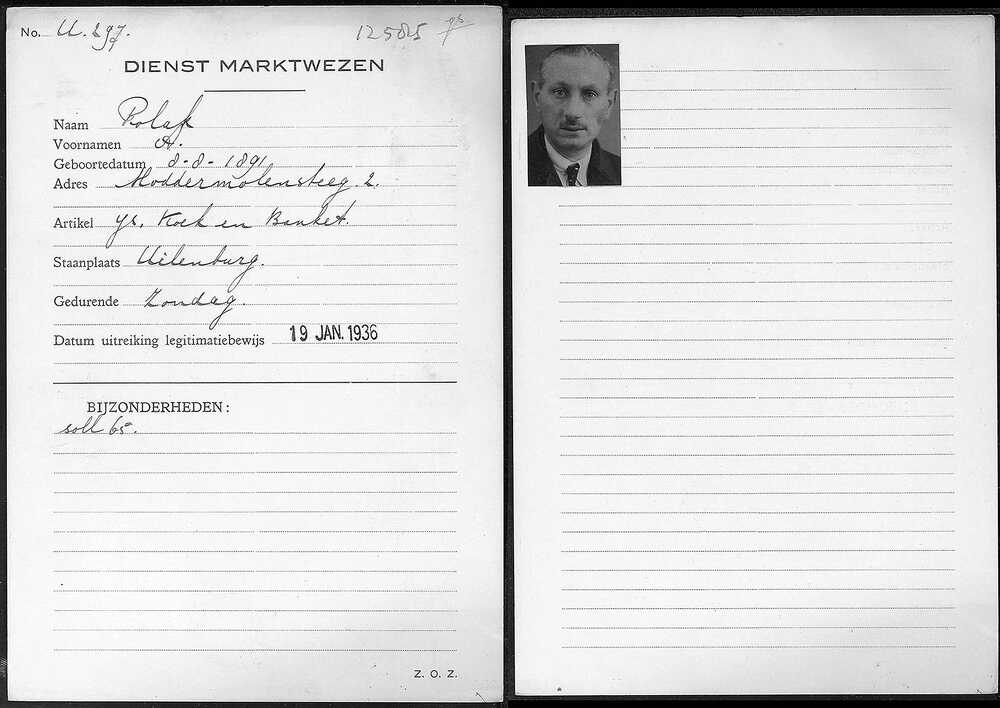 No. U. 297.
125085
DIENST MARKTWEZEN
Naam Polak
Voornamen A.
Geboortedatum 8-8-1891
Adres Moddermolensteeg 2.
Artikel ys, Koek en Banket.
Staanplaats Uilenburg.
Gedurende Zondag.
Datum uitreiking legitimatiebewijs 19 JAN. 1936
BIJZONDERHEDEN:
soll 65.
Z. O. Z.